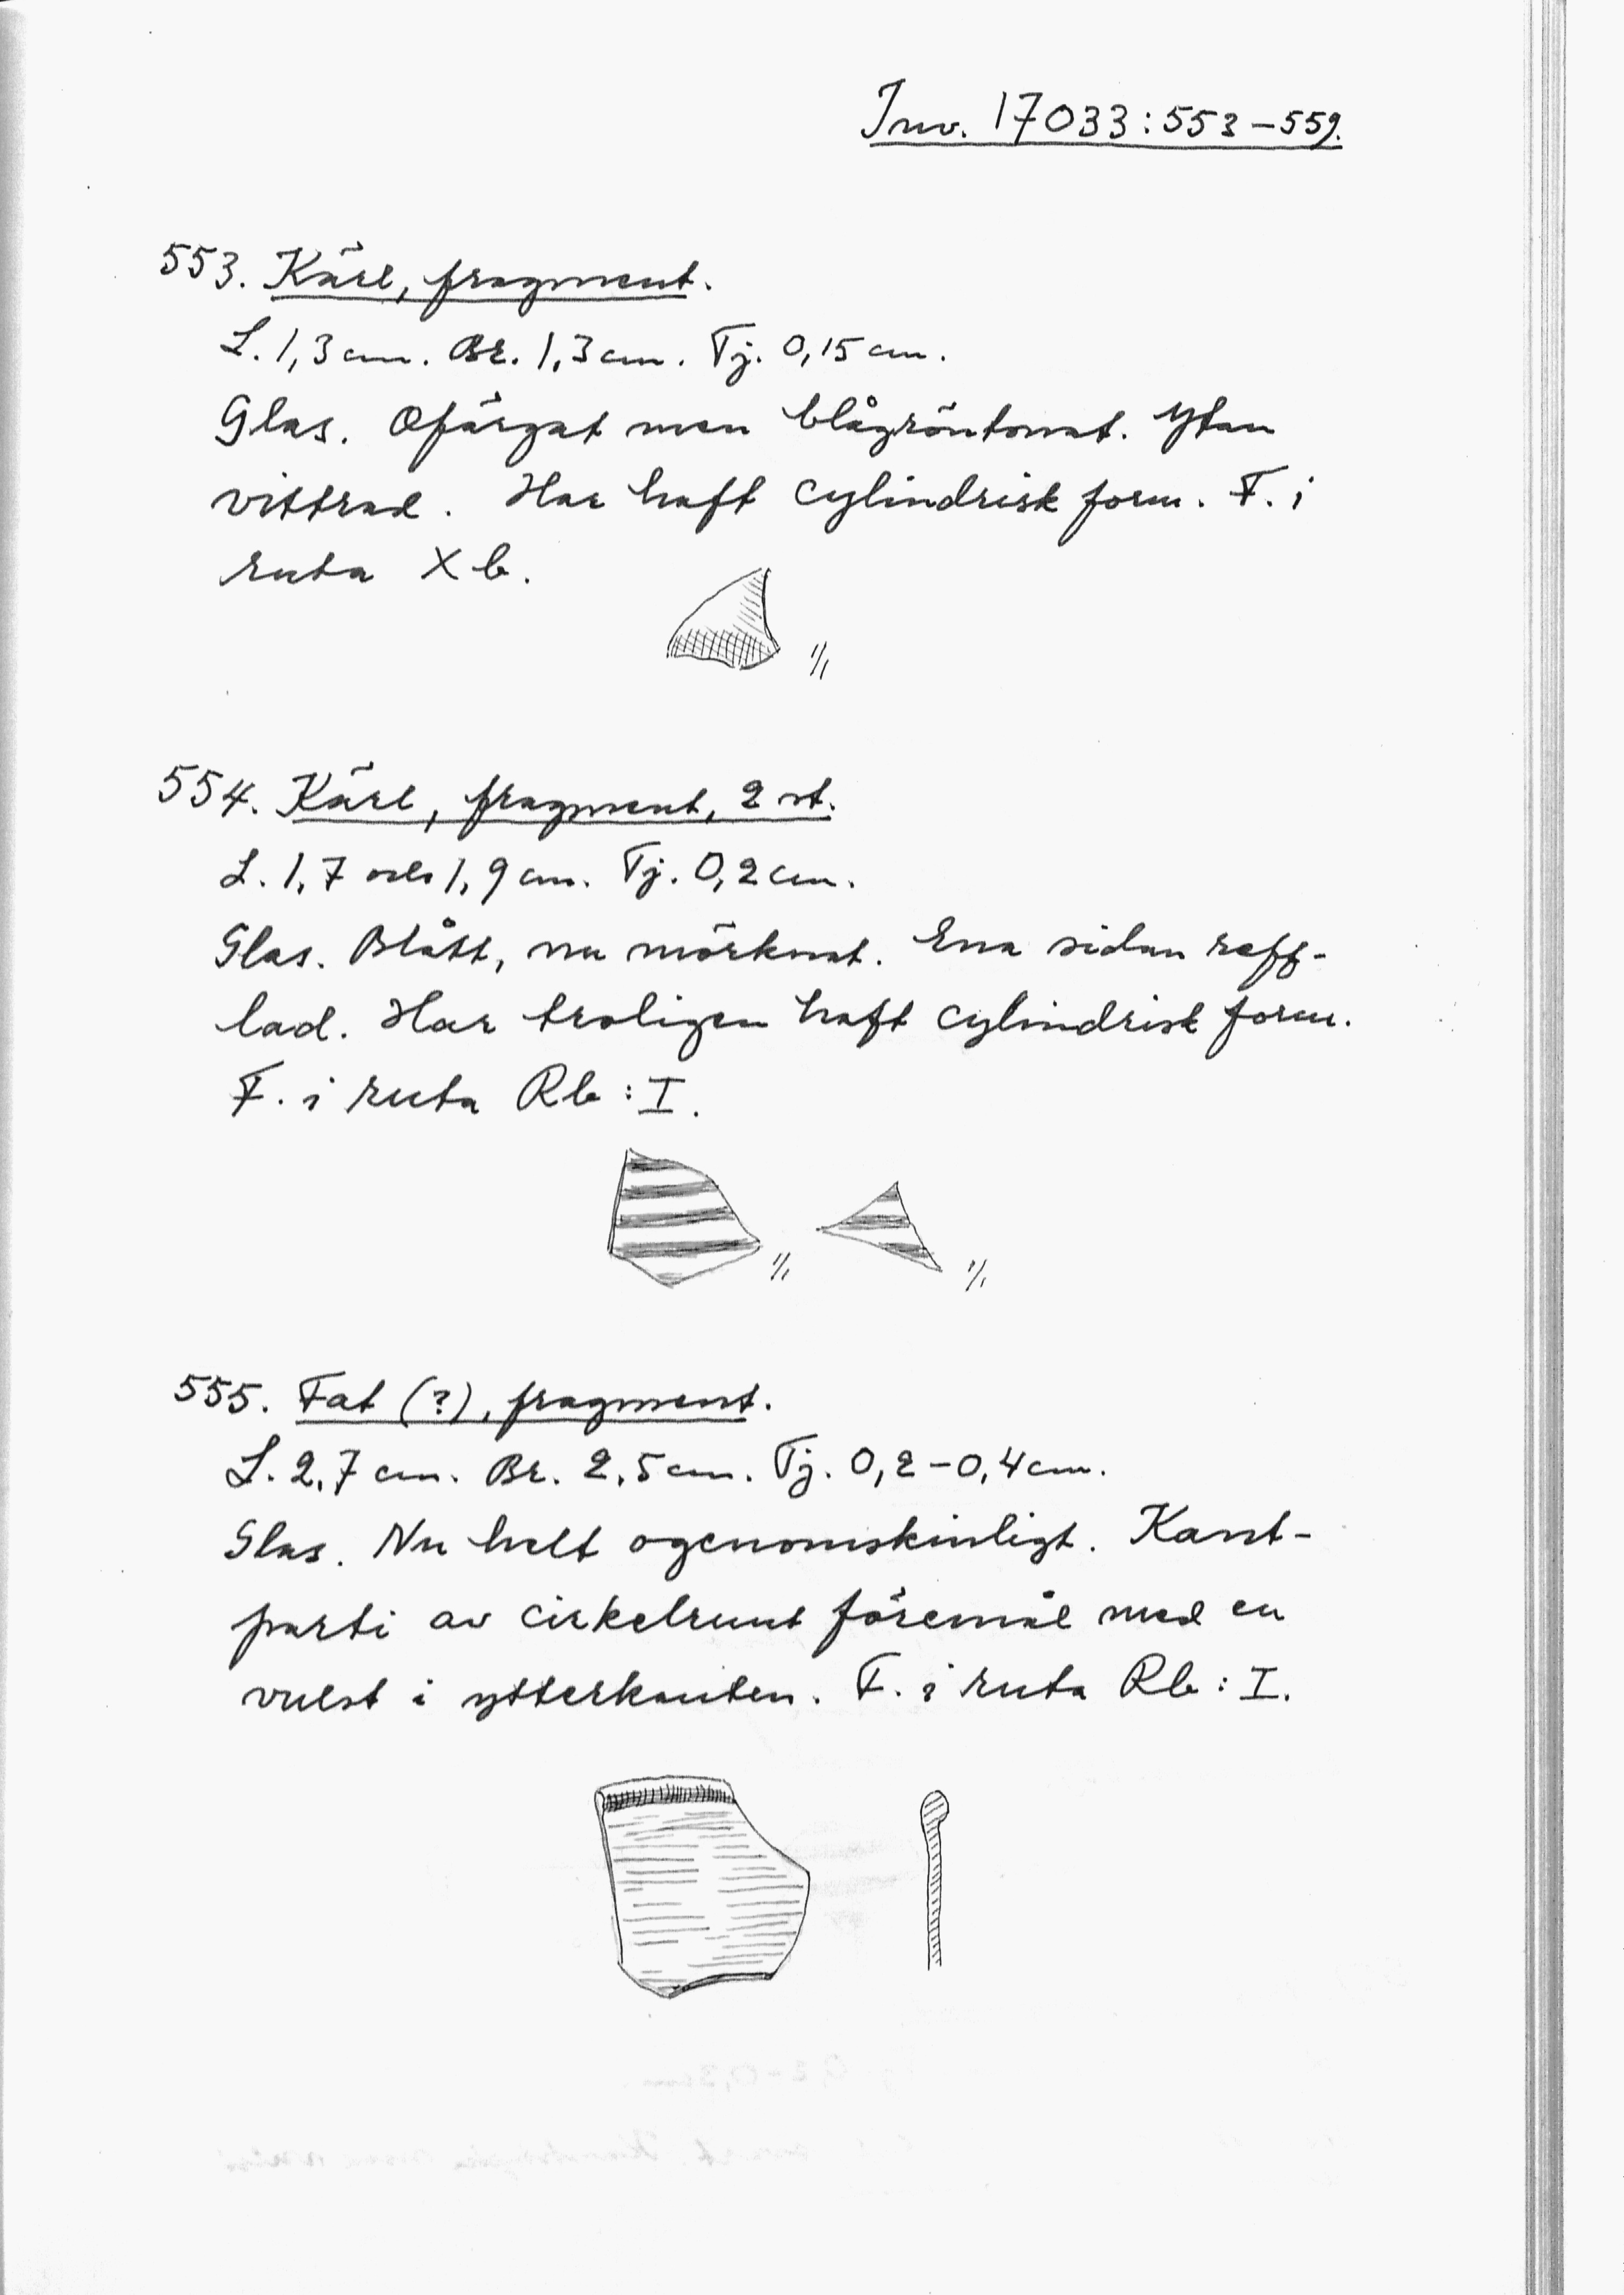 Inv. 17033:553–559.
553. Kärl, fragment.
L. 1,3 cm. Br. 1,3 cm. Tj. 0,15 cm.
Glas. Ofärgat men blågröntonat. Ytan
vittrad. Har haft cylindrisk form. F. i
ruta Xb.
1/1
554. Kärl, fragment, 2 st.
L. 1,7 och 1,9 cm. Tj. 0,2 cm.
Glas. Blått, nu mörknat. Ena sidan reff-
lad. Har troligen haft cylindrisk form.
F. i ruta Rb:I.
1/1 1/1
555. Fat (?), fragment.
L. 2,7 cm. Br. 2,5 cm. Tj. 0,2–0,4 cm.
Glas. Nu helt ogenomskinligt. Kant-
parti av cirkelrunt föremål med en
vulst i ytterkanten. F. i ruta Rb:I.